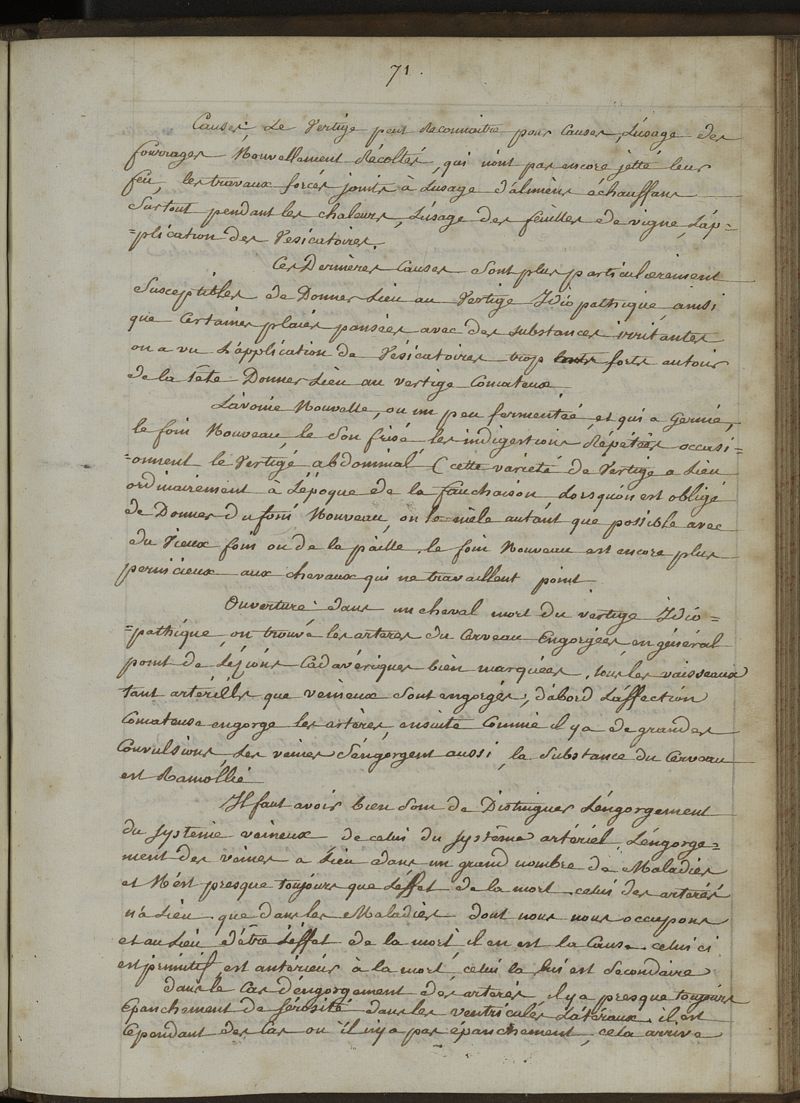 71.
Causes, Le Vertige peut Reconnaitre pour Causes, L'usage des
fourrages Nouvellement Récoltés, qui n'ont pas encore jetté leur
feu, les travaux forcés joints à L'usage d'alimens échauffans
Surtout pendant les chaleurs, L'usage des feuilles de vigne, L'ap=
=plication des Vesicatoires.
Ces Dernières Causes Sont plus particulierement
Susceptibles de Donner Lieu au Vertige Idiopathique, ainsi
que Certaines plaies pansées avec des substances irritantes
on a vu L'application de Vésicatoires trop forts autour
de la tête Donner Lieu au vertige Comateux
L'avoine Nouvelle, ou un peu fermentée, et qui a Germé,
le foin Nouveau, le Son frisé les indigestions Répétées occasi=
=onnent le Vertige abdominal (cette varieté de Vertige a Lieu
ordinairement à L'époque de la fauchaison Lorsqu'on est obligé
de Donner du foin Nouveau, on le mêle autant que possible avec
du Vieux foin ou de la paille. le foin Nouveau est encore plus
pernicieux aux chevaux qui ne travaillent point.
Ouverture dans un cheval mort du vertige Idio=
=pathique, on trouve les arteres du Cerveau Engorgées, en général
point de Lézions Cadavériques bien marquées, tous les vaisseaux
tant artériels que veineux sont engorgés, d'abord L'affection
Comateuse engorge les artères, ensuite Comme il y a de grandes
Convulsions, Les veines S'engorgent aussi, la Substance du Cerveau
est Ramollie
Il faut avoir bien Soin de Distinguer L'engorgement
du Système veineux de celui du système artériel. L'engorge=
ment des veines a Lieu dans un grand nombre de Maladies
et N'est presque toujours que L'effet de la mort. celui des arteres
n'a Lieu que dans les Maladies dont nous nous occupons
et au Lieu d'être L'éffet de la mort, il en est la Cause. celui ci
est primitif, est antérieur à la mort, celui la lui est Secondaire
dans le Cas d'engorgement des arteres, il y a presque toujours
Epanchement de Sérosité dans les ventricules Latéraux. il est
Cependant des Cas ou il n'y a pas epanchement, cela arrive